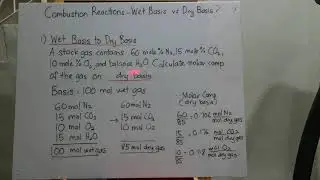 Combustion Reactions - Wet Basis vs Dry Basis?
1) Wet Basis to Dry Basis
A stack gas contains 60 mole% N₂, 15 mole% CO₂,
10 mole% O₂ and balance H₂O. Calculate molar comp
of the gas on dry basis
Basis: 100 mol wet gas
60 mol N₂
15 mol CO₂
10 mol O₂
15 mol H₂O
100 mol wet gas
→
60 mol N₂
15 mol CO₂
10 mol O₂
85 mol dry gas
Molar Comp.
(dry basis)
60/85 = 0.706 mol N₂/mol dry gas
15/85 = 0.176 mol CO₂/mol dry gas
10/85 = 0.118 mol O₂/mol dry gas